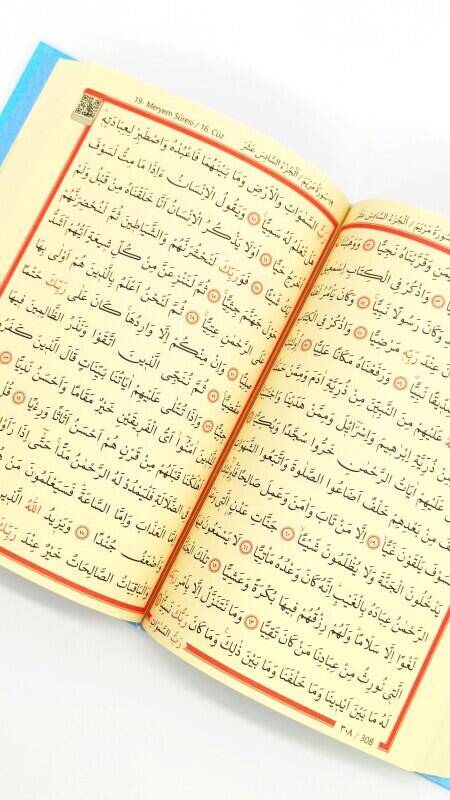 سُورَةُ مَرْيَمَ / اَلْجُزْءُ السَّادِسَ عَشَرَ
وَقَرَّبْنَاهُ نَجِيًّا ﴿٥٢﴾ وَوَهَبْنَا
﴿٥٣﴾ وَاذْكُرْ فِي الْكِتَابِ اِسْمٰعِيلَ
وَكَانَ رَسُولًا نَبِيًّا ﴿٥٤﴾ وَكَانَ يَأْمُرُ
وَكَانَ عِنْدَ رَبِّهِ مَرْضِيًّا ﴿٥٥﴾ وَاذْكُرْ فِي الْكِتَابِ
صِدِّيقًا نَبِيًّا ﴿٥٦﴾ وَرَفَعْنَاهُ مَكَانًا عَلِيًّا ﴿٥٧﴾ اُو۬لٰٓئِكَ
عَلَيْهِمْ مِنَ النَّبِيّٖنَ مِنْ ذُرِّيَّةِ اٰدَمَ وَمِمَّنْ
مِنْ ذُرِّيَّةِ اِبْرٰهِيمَ وَاِسْرَٓائِلَ وَمِمَّنْ هَدَيْنَا
عَلَيْهِمْ اٰيَاتُ الرَّحْمٰنِ خَرُّوا سُجَّدًا وَبُكِيًّا
مِنْ بَعْدِهِمْ خَلْفٌ اَضَاعُوا الصَّلٰوةَ وَاتَّبَعُوا الشَّهَوَاتِ
فَسَوْفَ يَلْقَوْنَ غَيًّا ﴿٥٩﴾ اِلَّا مَنْ تَابَ وَاٰمَنَ وَعَمِلَ صَالِحًا فَاُو۬لٰٓئِكَ
يَدْخُلُونَ الْجَنَّةَ وَلَا يُظْلَمُونَ شَيْـًٔا ﴿٦٠﴾ جَنَّاتِ عَدْنٍ الَّتٖي
الرَّحْمٰنُ عِبَادَهُ بِالْغَيْبِ اِنَّهُ كَانَ وَعْدُهُ مَأْتِيًّا ﴿٦١﴾ لَا يَسْمَعُونَ
لَغْوًا اِلَّا سَلَامًا وَلَهُمْ رِزْقُهُمْ فِيهَا بُكْرَةً وَعَشِيًّا ﴿٦٢﴾ تِلْكَ الْجَنَّةُ
الَّتٖي نُورِثُ مِنْ عِبَادِنَا مَنْ كَانَ تَقِيًّا ﴿٦٣﴾ وَمَا نَتَنَزَّلُ اِلَّا بِاَمْرِ رَبِّكَ
لَهُ مَا بَيْنَ اَيْدٖينَا وَمَا خَلْفَنَا وَمَا بَيْنَ ذٰلِكَ وَمَا كَانَ رَبُّكَ نَسِيًّا
رَبُّ السَّمٰوَاتِ
٣٠٨ / 308
19- Meryem Sûresi / 16. Cüz
١٩- سُورَةُ مَرْيَمَ / اَلْجُزْءُ السَّادِسَ عَشَرَ
رَبُّ السَّمٰوَاتِ وَالْاَرْضِ وَمَا بَيْنَهُمَا فَاعْبُدْهُ وَاصْطَبِرْ لِعِبَادَتِهِ
تَعْلَمُ لَهُ سَمِيًّا ﴿٦٥﴾ وَيَقُولُ الْاِنْسَانُ ءَاِذَا مَا مِتُّ لَسَوْفَ
اُخْرَجُ حَيًّا ﴿٦٦﴾ اَوَلَا يَذْكُرُ الْاِنْسَانُ اَنَّا خَلَقْنَاهُ مِنْ قَبْلُ وَلَمْ
يَكُ شَيْـًٔا ﴿٦٧﴾ فَوَرَبِّكَ لَنَحْشُرَنَّهُمْ وَالشَّيَاطٖينَ ثُمَّ لَنُحْضِرَنَّهُمْ
حَوْلَ جَهَنَّمَ جِثِيًّا ﴿٦٨﴾ ثُمَّ لَنَنْزِعَنَّ مِنْ كُلِّ شٖيعَةٍ اَيُّهُمْ اَشَدُّ
عَلَى الرَّحْمٰنِ عِتِيًّا ﴿٦٩﴾ ثُمَّ لَنَحْنُ اَعْلَمُ بِالَّذٖينَ هُمْ اَوْلٰى بِهَا
﴿٧٠﴾ وَاِنْ مِنْكُمْ اِلَّا وَارِدُهَا كَانَ عَلٰى رَبِّكَ حَتْمًا
مَقْضِيًّا ﴿٧١﴾ ثُمَّ نُنَجِّي الَّذٖينَ اتَّقَوْا وَنَذَرُ الظَّالِمٖينَ فِيهَا
جِثِيًّا ﴿٧٢﴾ وَاِذَا تُتْلٰى عَلَيْهِمْ اٰيَاتُنَا بَيِّنَاتٍ قَالَ الَّذٖينَ كَفَرُوا
اٰمَنُوا اَيُّ الْفَرٖيقَيْنِ خَيْرٌ مَقَامًا وَاَحْسَنُ نَدِيًّا ﴿٧٣﴾
اَهْلَكْنَا قَبْلَهُمْ مِنْ قَرْنٍ هُمْ اَحْسَنُ اَثَاثًا وَرِءْيًا ﴿٧٤﴾ قُلْ
فِي الضَّلَالَةِ فَلْيَمْدُدْ لَهُ الرَّحْمٰنُ مَدًّا حَتّٰى اِذَا رَاَوْا
اِمَّا الْعَذَابَ وَاِمَّا السَّاعَةَ فَسَيَعْلَمُونَ مَنْ
وَاَضْعَفُ جُنْدًا ﴿٧٥﴾ وَيَزٖيدُ اللّٰهُ الَّذٖينَ
وَالْبَاقِيَاتُ الصَّالِحَاتُ خَيْرٌ عِنْدَ رَبِّكَ